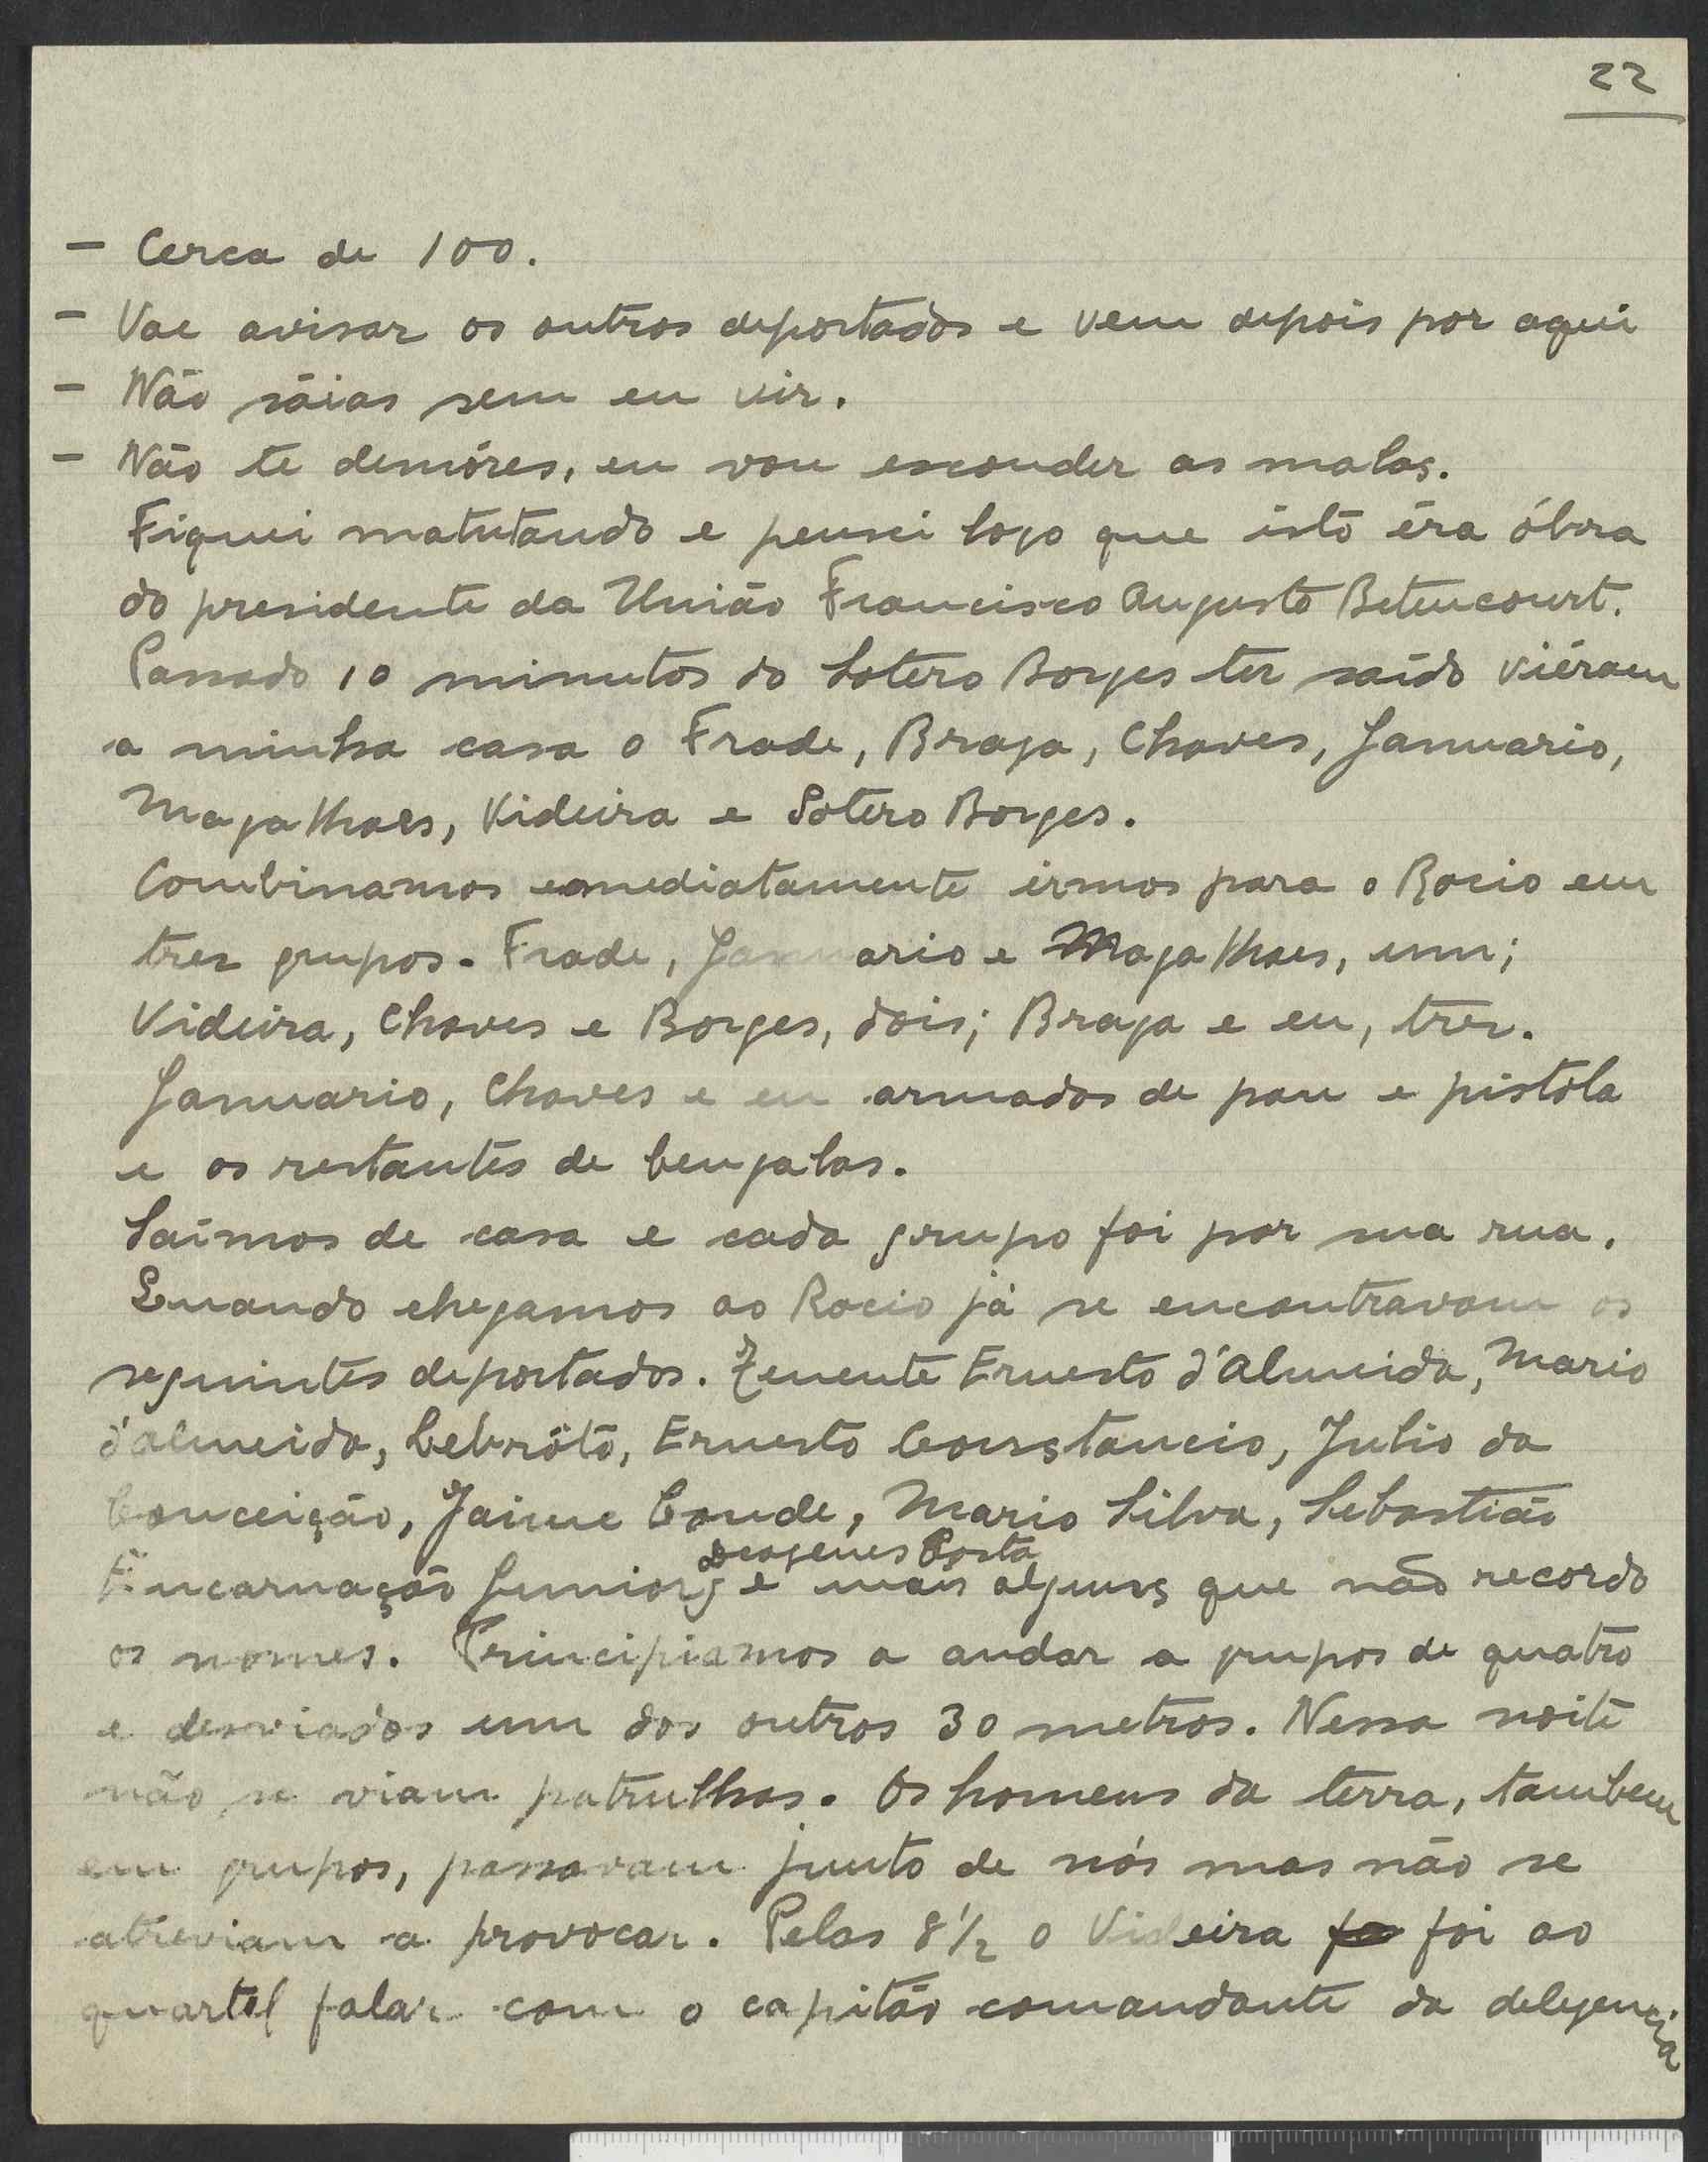 22
- Cerca de 100.
- Vae avisar os outros deportados e vem depois por aqui
- Não sáias sem eu vir.
- Não te demóres, eu vou esconder as malas.
Fiquei matutando e pensei logo que isto éra óbra
do presidente da União Francisco Augusto Betencourt.
Passado 10 minutos do Sotero Borges ter saído viéram
a minha casa o Frade, Braga, Chaves, Januario,
Magalhaes, Videira e Sotero Borges.
Combinamos emediatamente irmos para o Rocio em
tres grupos. Frade, Januario e Magalhaes, um;
Videira, Chaves e Borges, dois; Braga e eu, tres.
Januario, Chaves e eu armados de pau e pistóla
e os restantes de bengalas.
Saímos de casa e cada grupo foi por sua rua.
Quando chegamos ao Rocio já se encontravam os
seguintes deportados. Tenente Ernesto d'Almeida, Mario
d'almeida, Ernesto Constancio, Julio da
Conceição, Jaime Conde, Mario Silva, Sebastião
Deogenes Costa
Encarnação Junior, e mais alguns que não recordo
os nomes. Principiamos a andar a grupos de quatro
e desviados um dos outros 30 metros. Nessa noite
não se viam patrulhas. Os homens da terra, tambem
em grupos, passavam junto de nós mas não se
atreviam a provocar. Pelas 8 1/2 o Videira fo foi ao
quartel falar com o capitão comandante da delegencia